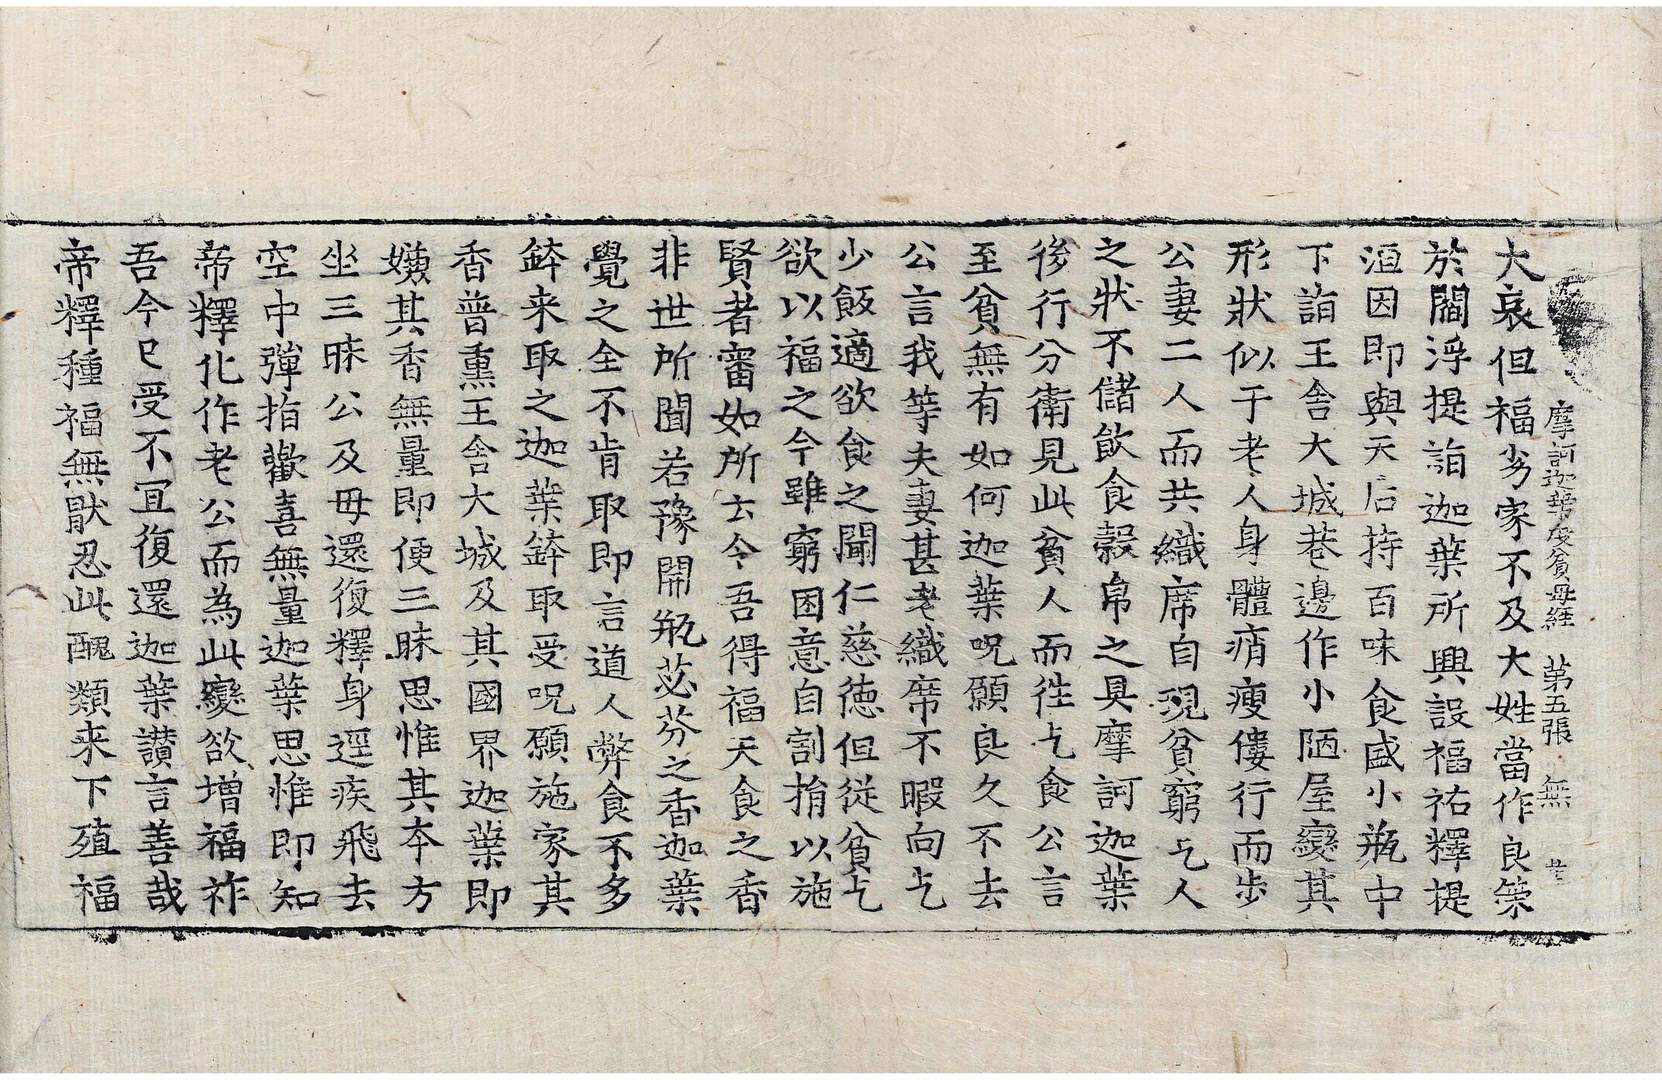 摩訶迦葉度貧母経 第五張 無
大哀但福劣家不及大姓當作良策
於閻浮提詣迦葉所興設福祐釋提
洹因即與天后持百味食盛小瓶中
下詣王舍大城巷邊作小陋屋變其
形狀似于老人身體痟瘦僂行而步
公妻二人而共織席自現貧窮乞人
之狀不儲飲食穀帛之具摩訶迦葉
後行分衛見此貧人而往乞食公言
至貧無有如何迦葉呪願良久不去
公言我等夫妻甚老織席不暇向乞
少飯適欲食之聞仁慈德但從貧乞
欲以福之今雖窮困意自割捐以施
賢者審如所云令吾得福天食之香
非世所聞若豫開瓶苾芬之香迦葉
覺之全不肯取即言道人弊食不多
鉢来取之迦葉鉢取受呪願施家其
香普熏王舍大城及其國界迦葉即
嫌其香無量即便三昧思惟其本方
坐三昧公及母還復釋身逕疾飛去
空中彈指歡喜無量迦葉思惟即知
帝釋化作老公而為此變欲增福祚
吾今已受不冝復還迦葉讃言善哉
帝釋種福無猒忍此醜類来下殖福